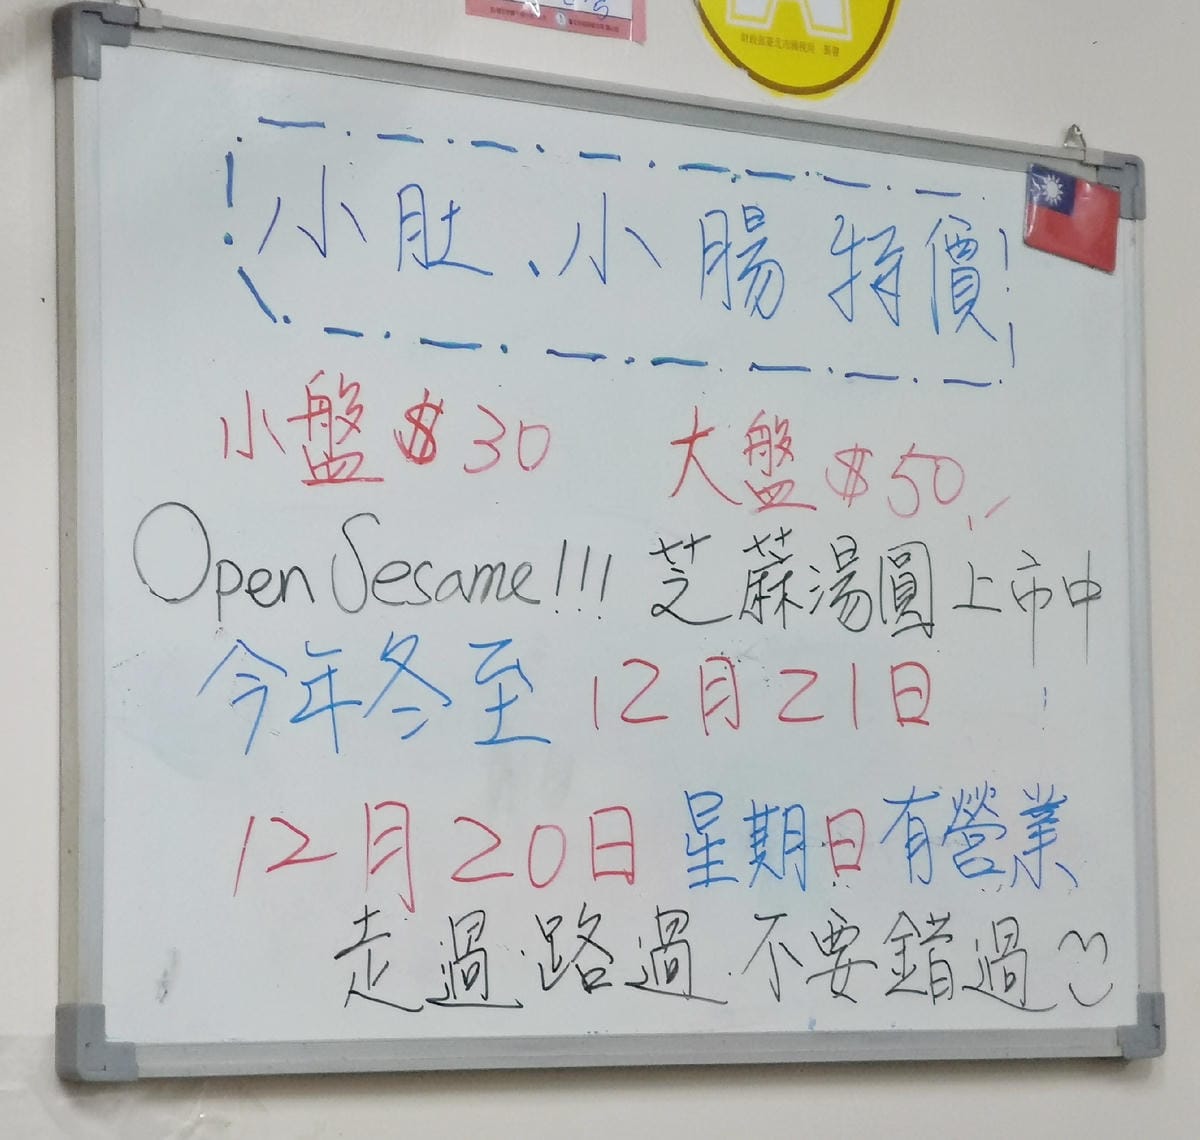 財政部臺北市國稅局 製發
小肚、小腸特價
小盤$30 大盤$50
Open Sesame!!! 芝蔴湯圓上市中
今年冬至12月21日
12月20日星期日有營業
走過.路過.不要錯過